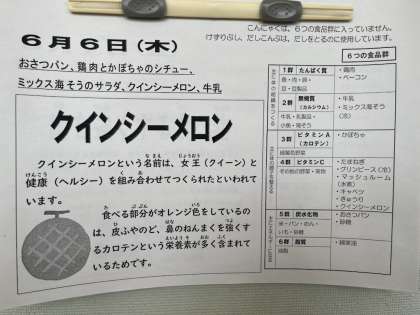 こんにゃくは、6つの食品群に入っていません。
けずりぶし、だしこんぶは、だしをとるのに使用しています。
6月6日(木)
おさつパン、鶏肉とかぼちゃのシチュー、
ミックス海そうのサラダ、クインシーメロン、牛乳
クインシーメロン
クインシーメロンという名前は、女王(クイーン)と
健康(ヘルシー)を組み合わせてつくられたといわれて
います。
食べる部分がオレンジ色をしているの
は、皮ふやのど、鼻のねんまくを強くす
るカロテンという栄養素が多く含まれて
いるためです。
6つの食品群
1群 たんぱく質
魚・肉・卵・
豆・豆製品
・鶏肉
・ベーコン
2群 無機質
(カルシウム)
牛乳・乳製品・
小魚・海そう
・牛乳
・ミックス海そう
(冷)
3群 ビタミンA
(カロテン)
緑黄色野菜
・かぼちゃ
4群 ビタミンC
その他の野菜・果物
・たまねぎ
・グリンピース(冷)
・マッシュルーム
(水煮)
・キャベツ
・きゅうり
・クインシーメロン
5群 炭水化物
米・パン・めん・
いも・砂糖
・おさつパン
・砂糖
6群 脂質
油脂
・綿実油